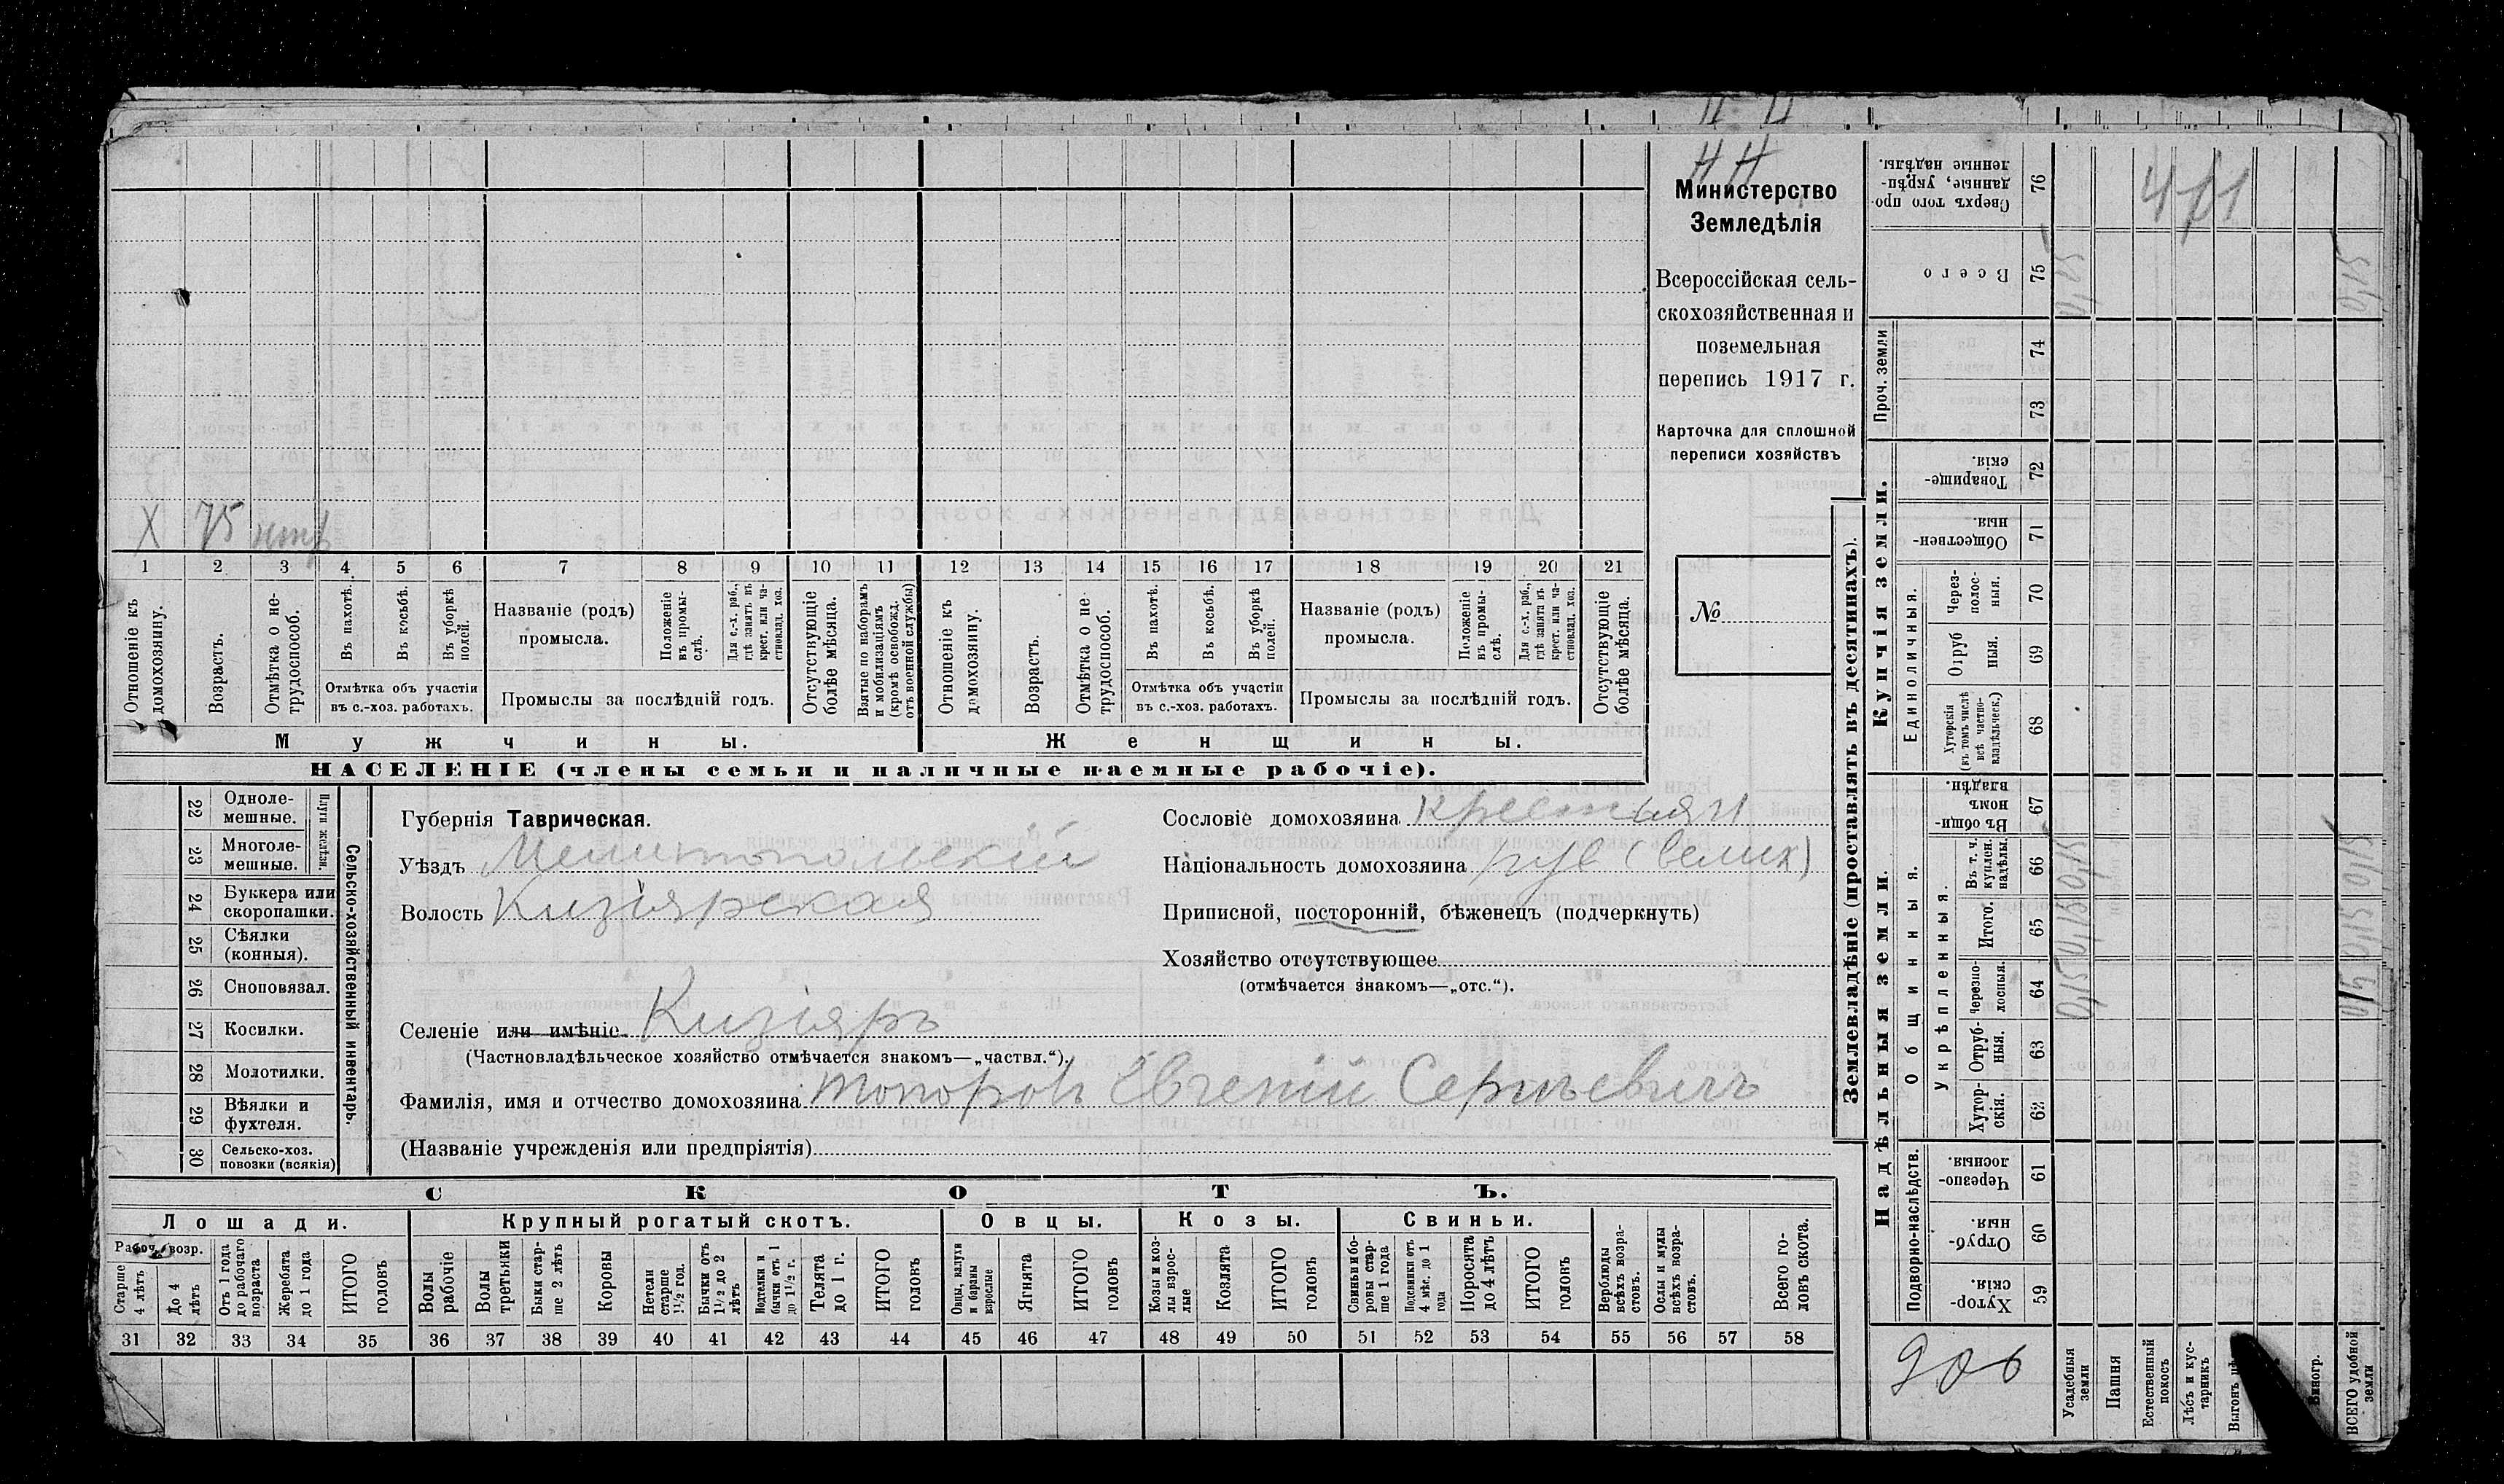 Н Н
Министерство
Земледѣлія
Всероссійская сель-
скохозяйственная и
поземельная
перепись 1917 г.
Карточка для сплошной
переписи хозяйствъ
№
Х 75 нтр
1 2 3 4 5 6 7 8 9 10 11 12 13 14 15 16 17 18 19 20 21
Отношеніе къ домохозяину.
Возрастъ.
Отмѣтка о не-трудоспособ.
Въ пахотѣ.
Въ косьбѣ.
Въ уборкѣ полей.
Отмѣтка объ участіи
въ с.-хоз. работахъ.
Названіе (родъ)
промысла.
Положеніе въ промы-слѣ.
Для с.-х. раб., гдѣ занятъ въ крест. или ча-стновлад. хоз.
Промыслы за послѣдній годъ.
Отсутствующіе болѣе мѣсяца.
Взятые по наборамъ и мобилизаціямъ (кромѣ освобожд. отъ военной службы)
Отношеніе къ домохозяину.
Возрастъ.
Отмѣтка о не трудоспособ.
Въ пахотѣ.
Въ косьбѣ.
Въ уборкѣ полей.
Отмѣтка объ участіи
въ с.-хоз. работахъ.
Названіе (родъ)
промысла.
Положеніе въ промы-слѣ.
Для с.-х. раб., гдѣ занята въ крест. или ча-стновлад. хоз.
Промыслы за послѣдній годъ.
Отсутствующіе болѣе мѣсяца.
Мужчины. Женщины.
НАСЕЛЕНІЕ (члены семьи и наличные наемные рабочіе).
Сельско-хозяйственный инвентарь.
Плуги желѣзн.
22 Одноле-мешные.
23 Многоле-мешные.
24 Буккера или скоропашки.
25 Сѣялки (конныя).
26 Сноповязал.
27 Косилки.
28 Молотилки.
29 Вѣялки и фухтеля.
30 Сельско-хоз. повозки (всякія)
Губернія Таврическая.
Уѣздъ Мелитопольскій
Волость Кизіярская
Селеніе или имѣніе Кизіяръ
(Частновладѣльческое хозяйство отмѣчается знакомъ—„частвл.“).
Фамилія, имя и отчество домохозяина Топоровъ Евгеній Сергѣевичъ
(Названіе учрежденія или предпріятія)
Сословіе домохозяина крестьян
Національность домохозяина рус (велик)
Приписной, посторонній, бѣженецъ (подчеркнуть)
Хозяйство отсутствующее
(отмѣчается знакомъ—„отс.“).
СКОТЪ.
Лошади. Крупный рогатый скотъ. Овцы. Козы. Свиньи.
Рабоч. возр.
Старше 4 лѣтъ
До 4 лѣтъ
Отъ 1 года до рабочаго возраста
Жеребята до 1 года
ИТОГО головъ
Волы рабочіе
Волы третьяки
Быки стар-ше 2 лѣтъ
Коровы
Нетели старше 1½ год.
Бычки отъ 1½ до 2 лѣтъ
Подтелки и бычки отъ 1 до 1½ г.
Телята до 1 г.
ИТОГО головъ
Овцы, валухи и бараны взрослые
Ягнята
ИТОГО головъ
Козы и коз-лы взрос-лые
Козлята
ИТОГО головъ
Свиньи и бо-ровы стар-ше 1 года
Подсвинки отъ 4 мѣс. до 1 года
Поросята до 4 лѣтъ
ИТОГО головъ
Верблюды всѣхъ возра-стовъ.
Ослы и мулы всѣхъ возра-стовъ.
Всего го-ловъ скота.
31 32 33 34 35 36 37 38 39 40 41 42 43 44 45 46 47 48 49 50 51 52 53 54 55 56 57 58
Землевладѣніе (проставлять въ десятинахъ).
Надѣльныя земли. Купчія земли. Проч. земли
Подворно-наслѣдств.
Общинныя.
Укрѣпленныя.
Единоличныя.
76 Сверхъ того про-данные, укрѣп-ленные надѣлы.
75 Всего
74
73
72 Товарище-скія.
71 Обществен-ныя.
70 Через-полос-ныя.
69 Отруб ныя.
68 Хуторскія (въ томъ числѣ всѣ частно-владѣльческ.)
67 Въ общи-номъ владѣн.
66 Въ т. ч. куплен. надѣлы.
65 Итого.
64 Черезпо-лосныя.
63 Отруб-ныя.
62 Хутор-скія.
61 Черезпо-лосныя.
60 Отруб-ныя
59 Хутор-скія.
906
Усадебныя земли
Пашня
Естественный покосъ
Лѣсъ и кус-тарникъ
Выгонъ
Виногр.
ВСЕГО удобной земли